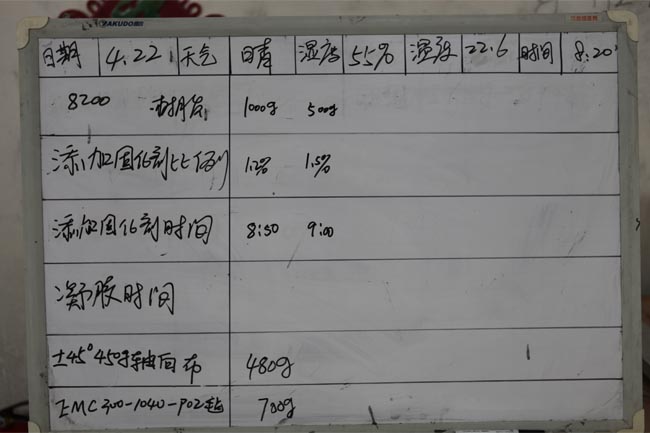 YAKUDO
日期 4.22 天气 日青 湿度 55% 温度 22.6 时间 8:20
8200 1000g 500g
添加固化剂比例 1.2% 1.5%
添加固化剂时间 8:50 9:00
凝胶时间
±45° 450g 轴向布 480g
EMC300-1040-P02毡 700g